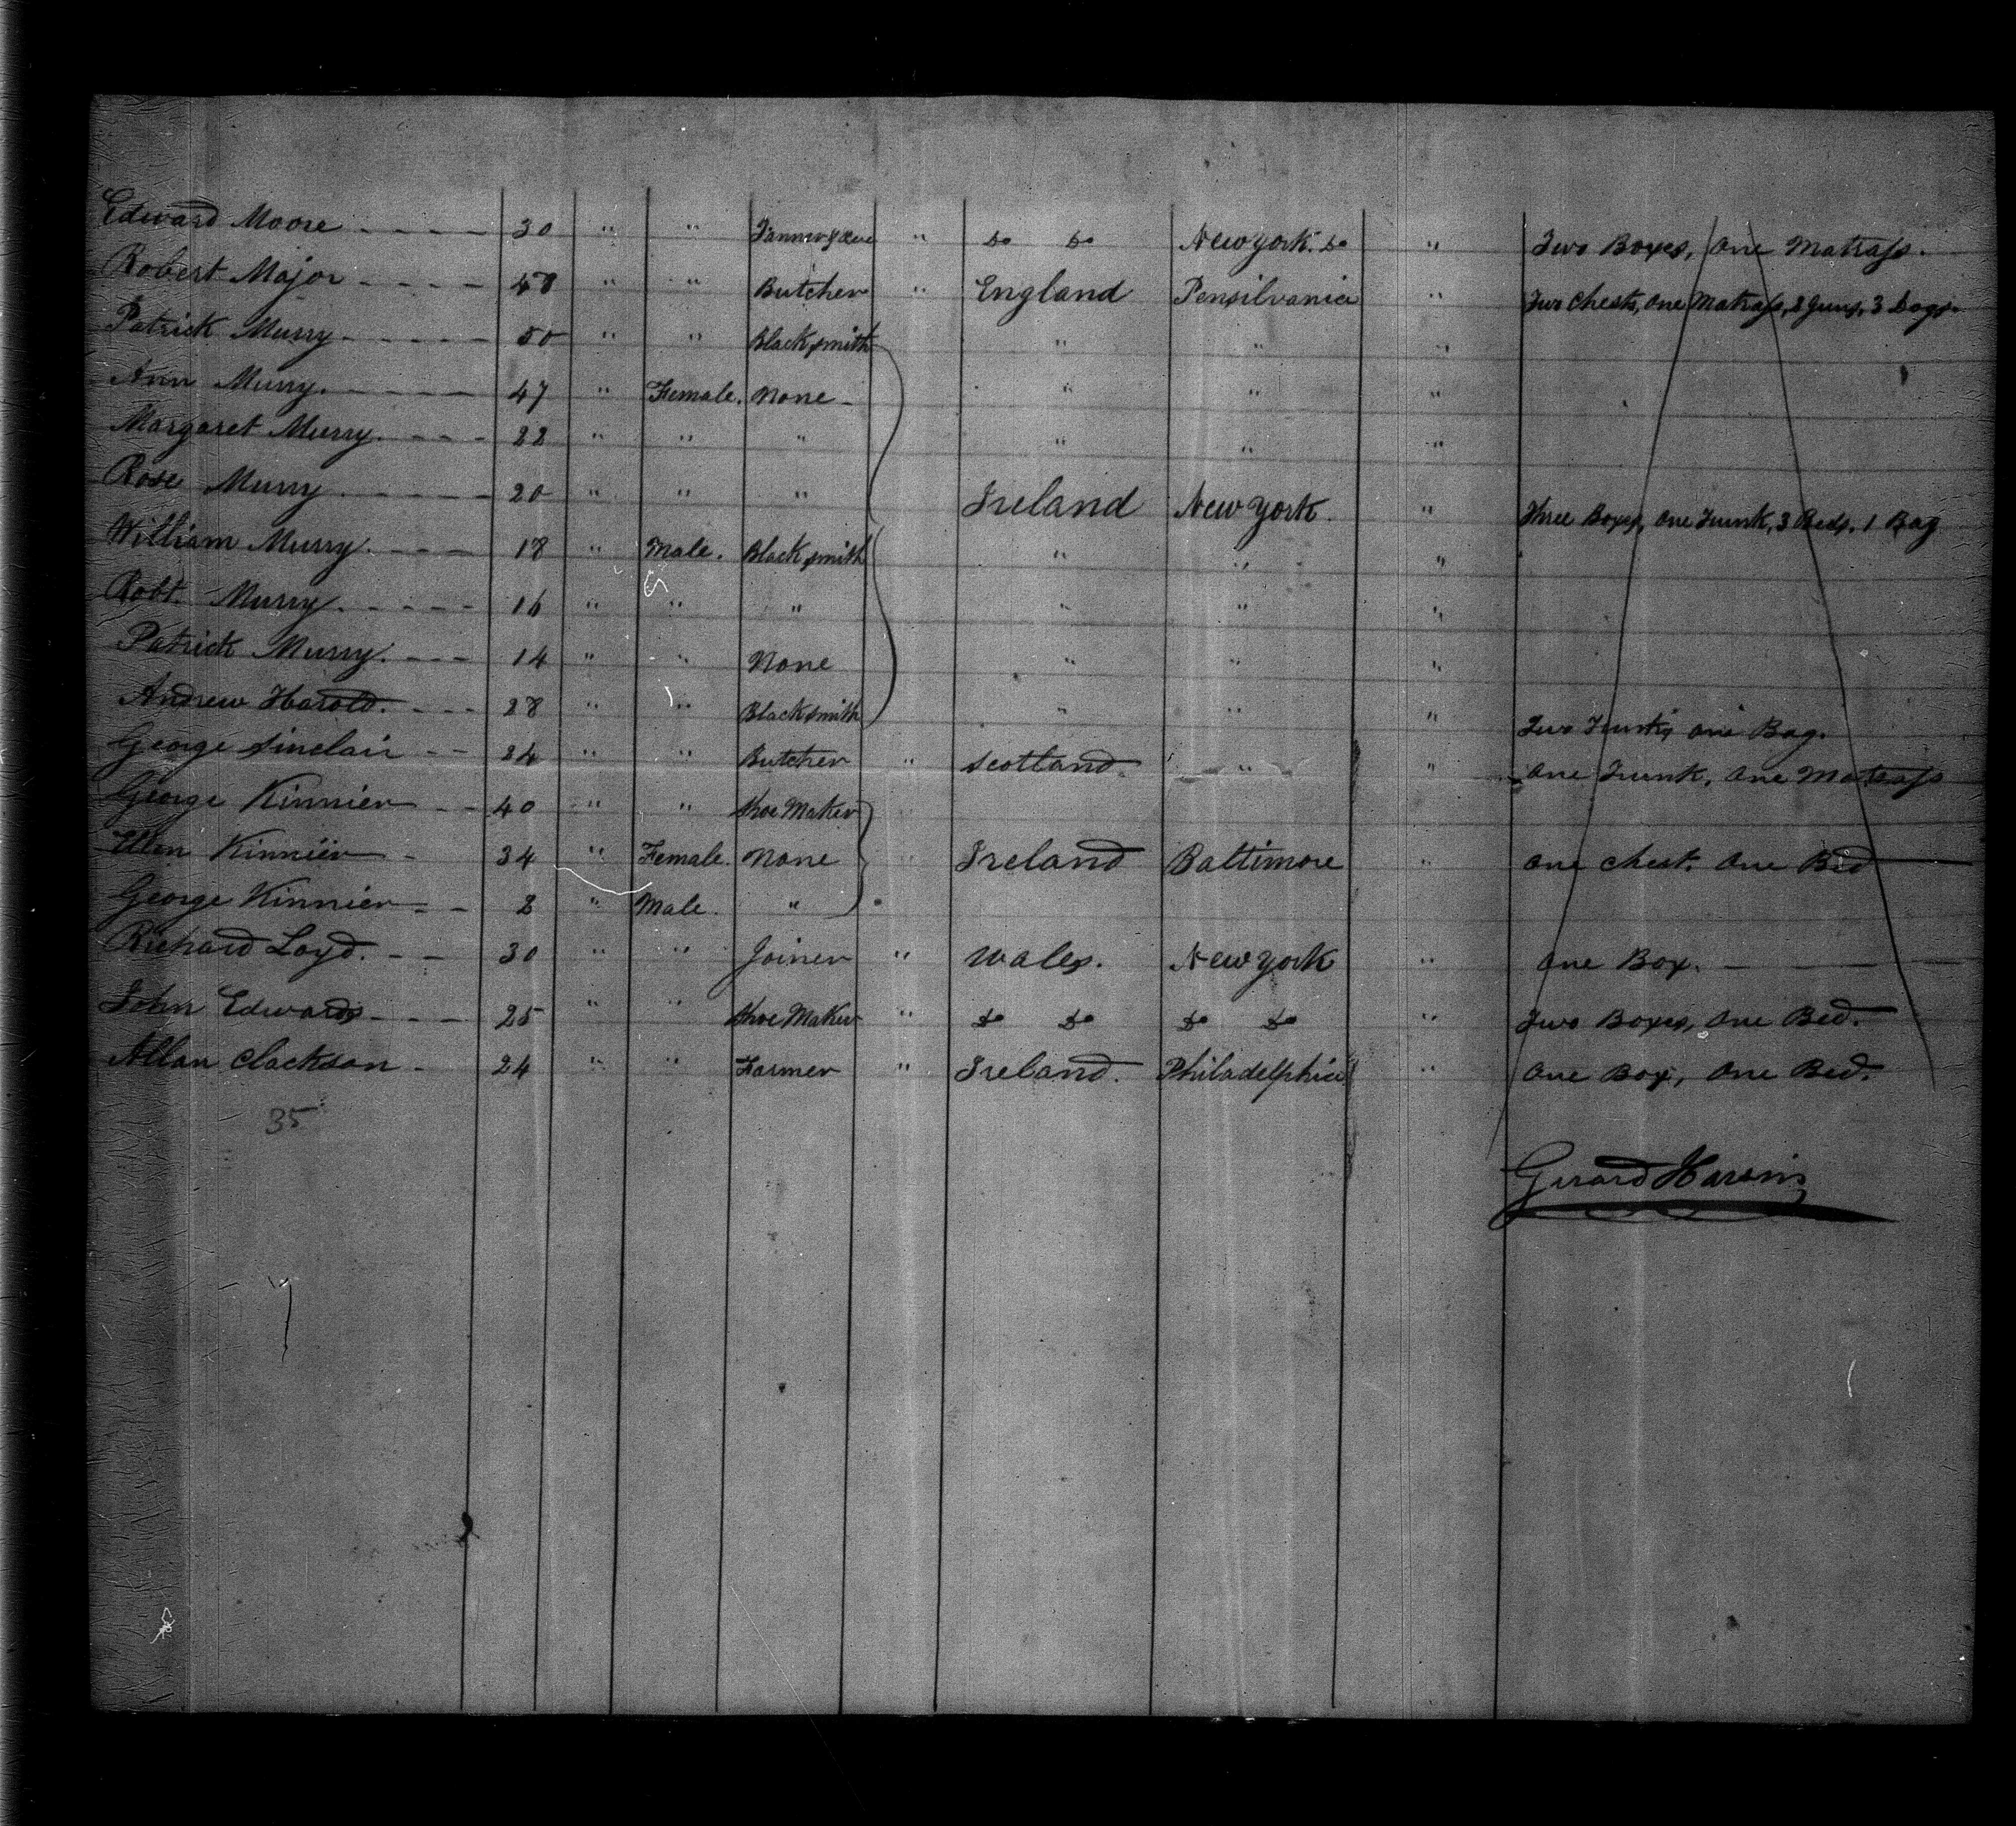 Edward Moore - - - - - 30 " " Tanner & " Do Do New York. Do " Two Boxes, One Matrass.
Robert Major - - - - 48 " " Butcher " England Pensilvania " Two Chests, One Matrass, 2 Guns, 3 Dogs.
Patrick Murry - - - - - 50 " " Blacksmith " " "
Ann Murry. - - - - - 47 " Female. None - " " "
Margaret Murry. - - - - 22 " " " " " "
Rose Murry - - - - - - 20 " " " Ireland New York. " Three Boxes, One Trunk, 3 Beds, 1 Bag
William Murry. - - - - 18 " Male. Blacksmith " " "
Robt. Murry. - - - - - 16 " " " " " "
Patrick Murry. - - - 14 " " None " " "
Andrew Harold. - - - 28 " " Blacksmith " " " Two Trunks, one Bag.
George Sinclair - - 24 " " Butcher " Scotland. " " One Trunk, One Matrass
George Kinnier - - 40 " " Shoe Maker
Ellen Kinnier - 34 " Female. None " Ireland Baltimore " One Chest. One Bed
George Kinnier - - 2 " Male. "
Richard Loyd. - - 30 " " Joiner " Wales. New York " One Box.
John Edwards - - - 25 " " Shoe Maker " Do Do Do Do " Two Boxes, One Bed.
Allan Clackson - 24 " " Farmer " Ireland. Philadelphia " One Box, One Bed.
35
Gerard